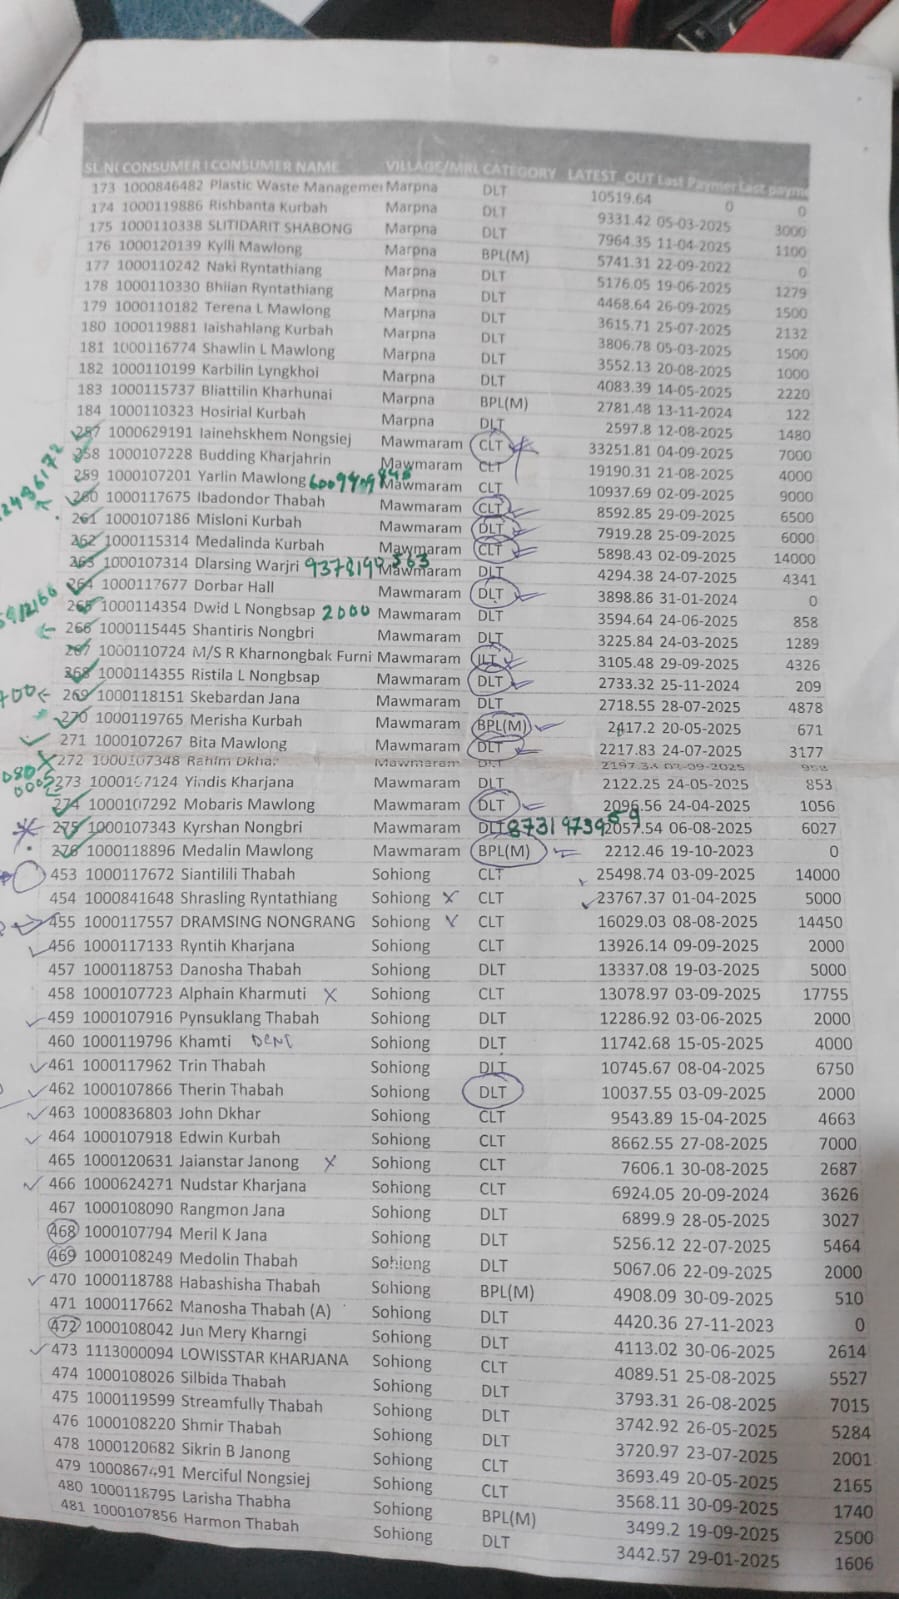 SL.N( CONSUMER I CONSUMER NAME VILLAGE/MRU CATEGORY LATEST_OUT Last Paymer Last payme
173 1000846482 Plastic Waste Manageme Marpna DLT 10519.64 0 0
174 1000119886 Rishbanta Kurbah Marpna DLT 9331.42 05-03-2025 3000
175 1000110338 SLITIDARIT SHABONG Marpna DLT 7964.35 11-04-2025 1100
176 1000120139 Kylli Mawlong Marpna BPL(M) 5741.31 22-09-2022 0
177 1000110242 Naki Ryntathiang Marpna DLT 5176.05 19-06-2025 1279
178 1000110330 Bhilan Ryntathiang Marpna DLT 4468.64 26-09-2025 1500
179 1000110182 Terena L Mawlong Marpna DLT 3615.71 25-07-2025 2132
180 1000119881 Iaishahlang Kurbah Marpna DLT 3806.78 05-03-2025 1500
181 1000116774 Shawlin L Mawlong Marpna DLT 3552.13 20-08-2025 1000
182 1000110199 Karbilin Lyngkhoi Marpna DLT 4083.39 14-05-2025 2220
183 1000115737 Bliattilin Kharhunai Marpna BPL(M) 2781.48 13-11-2024 122
184 1000110323 Hosirial Kurbah Marpna DLT 2597.8 12-08-2025 1480
257 1000629191 Iainehskhem Nongsiej Mawmaram CLT 33251.81 04-09-2025 7000
258 1000107228 Budding Kharjahrin Mawmaram CLT 19190.31 21-08-2025 4000
259 1000107201 Yarlin Mawlong Mawmaram CLT 10937.69 02-09-2025 9000
260 1000117675 Ibadondor Thabah Mawmaram CLT 8592.85 29-09-2025 6500
261 1000107186 Misloni Kurbah Mawmaram DLT 7919.28 25-09-2025 6000
262 1000115314 Medalinda Kurbah Mawmaram CLT 5898.43 02-09-2025 14000
263 1000107314 Dlarsing Warjri 9378190563 Mawmaram DLT 4294.38 24-07-2025 4341
264 1000117677 Dorbar Hall Mawmaram DLT 3898.86 31-01-2024 0
265 1000114354 Dwid L Nongbsap 2000 Mawmaram DLT 3594.64 24-06-2025 858
266 1000115445 Shantiris Nongbri Mawmaram DLT 3225.84 24-03-2025 1289
267 1000110724 M/S R Kharnongbak Furni Mawmaram ILT 3105.48 29-09-2025 4326
268 1000114355 Ristila L Nongbsap Mawmaram DLT 2733.32 25-11-2024 209
269 1000118151 Skebardan Jana Mawmaram DLT 2718.55 28-07-2025 4878
270 1000119765 Merisha Kurbah Mawmaram BPL(M) 2417.2 20-05-2025 671
271 1000107267 Bita Mawlong Mawmaram DLT 2217.83 24-07-2025 3177
272 1000107348 Rahim Dkhar Mawmaram DLT
273 1000107124 Yindis Kharjana Mawmaram DLT 2122.25 24-05-2025 853
274 1000107292 Mobaris Mawlong Mawmaram DLT 2096.56 24-04-2025 1056
275 1000107343 Kyrshan Nongbri Mawmaram DLT 8731973959 2057.54 06-08-2025 6027
276 1000118896 Medalin Mawlong Mawmaram BPL(M) 2212.46 19-10-2023 0
453 1000117672 Siantilili Thabah Sohiong CLT 25498.74 03-09-2025 14000
454 1000841648 Shrasling Ryntathiang Sohiong CLT 23767.37 01-04-2025 5000
455 1000117557 DRAMSING NONGRANG Sohiong CLT 16029.03 08-08-2025 14450
456 1000117133 Ryntih Kharjana Sohiong CLT 13926.14 09-09-2025 2000
457 1000118753 Danosha Thabah Sohiong DLT 13337.08 19-03-2025 5000
458 1000107723 Alphain Kharmuti Sohiong CLT 13078.97 03-09-2025 17755
459 1000107916 Pynsuklang Thabah Sohiong DLT 12286.92 03-06-2025 2000
460 1000119796 Khamti Sohiong DLT 11742.68 15-05-2025 4000
461 1000117962 Trin Thabah Sohiong DLT 10745.67 08-04-2025 6750
462 1000107866 Therin Thabah Sohiong DLT 10037.55 03-09-2025 2000
463 1000836803 John Dkhar Sohiong CLT 9543.89 15-04-2025 4663
464 1000107918 Edwin Kurbah Sohiong CLT 8662.55 27-08-2025 7000
465 1000120631 Jaianstar Janong Sohiong CLT 7606.1 30-08-2025 2687
466 1000624271 Nudstar Kharjana Sohiong CLT 6924.05 20-09-2024 3626
467 1000108090 Rangmon Jana Sohiong DLT 6899.9 28-05-2025 3027
468 1000107794 Meril K Jana Sohiong DLT 5256.12 22-07-2025 5464
469 1000108249 Medolin Thabah Sohiong DLT 5067.06 22-09-2025 2000
470 1000118788 Habashisha Thabah Sohiong BPL(M) 4908.09 30-09-2025 510
471 1000117662 Manosha Thabah (A) Sohiong DLT 4420.36 27-11-2023 0
472 1000108042 Jun Mery Kharngi Sohiong DLT 4113.02 30-06-2025 2614
473 1113000094 LOWISSTAR KHARJANA Sohiong CLT 4089.51 25-08-2025 5527
474 1000108026 Silbida Thabah Sohiong DLT 3793.31 26-08-2025 7015
475 1000119599 Streamfully Thabah Sohiong DLT 3742.92 26-05-2025 5284
476 1000108220 Shmir Thabah Sohiong DLT 3720.97 23-07-2025 2001
478 1000120682 Sikrin B Janong Sohiong CLT 3693.49 20-05-2025 2165
479 1000867491 Merciful Nongsiej Sohiong CLT 3568.11 30-09-2025 1740
480 1000118795 Larisha Thabha Sohiong BPL(M) 3499.2 19-09-2025 2500
481 1000107856 Harmon Thabah Sohiong DLT 3442.57 29-01-2025 1606